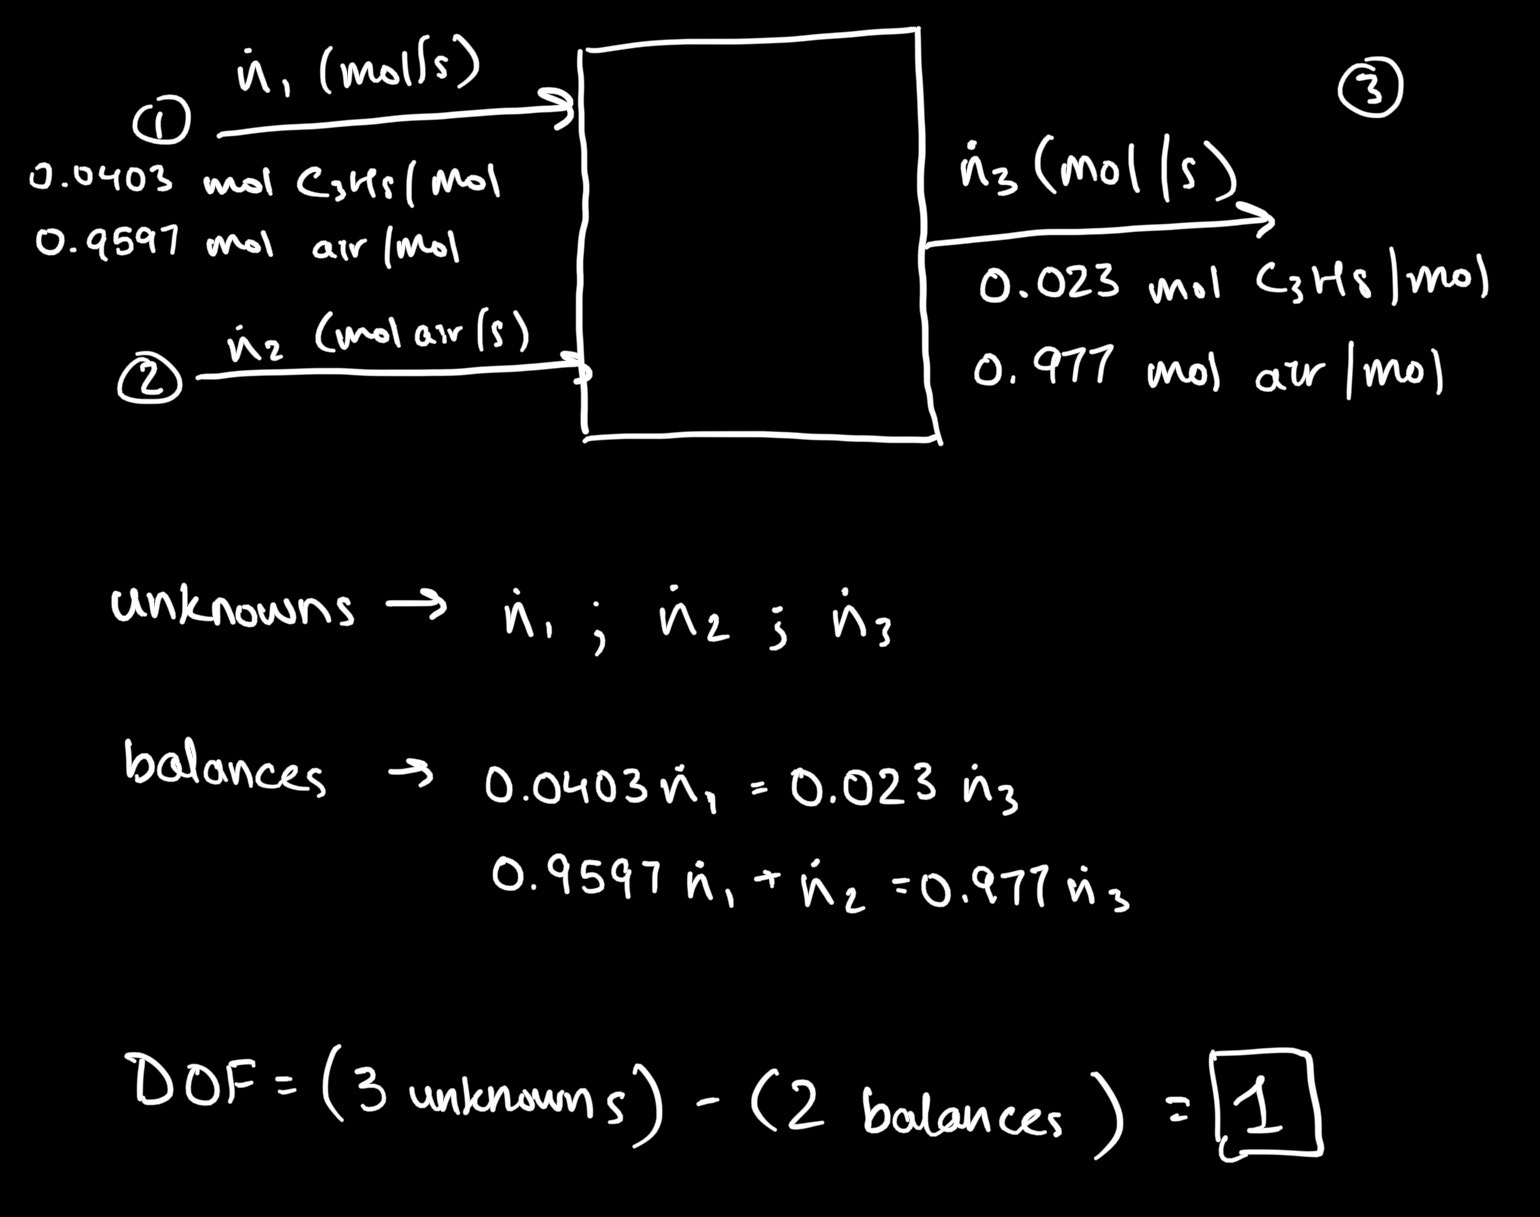 ṅ₁ (mol/s)
①
0.0403 mol C₃H₈/mol
0.9597 mol air/mol
ṅ₂ (mol air/s)
②
③
ṅ₃ (mol/s)
0.023 mol C₃H₈/mol
0.977 mol air/mol
unknowns → ṅ₁ ; ṅ₂ ; ṅ₃
balances → 0.0403 ṅ₁ = 0.023 ṅ₃
0.9597 ṅ₁ + ṅ₂ = 0.977 ṅ₃
DOF = (3 unknowns) - (2 balances) = 1